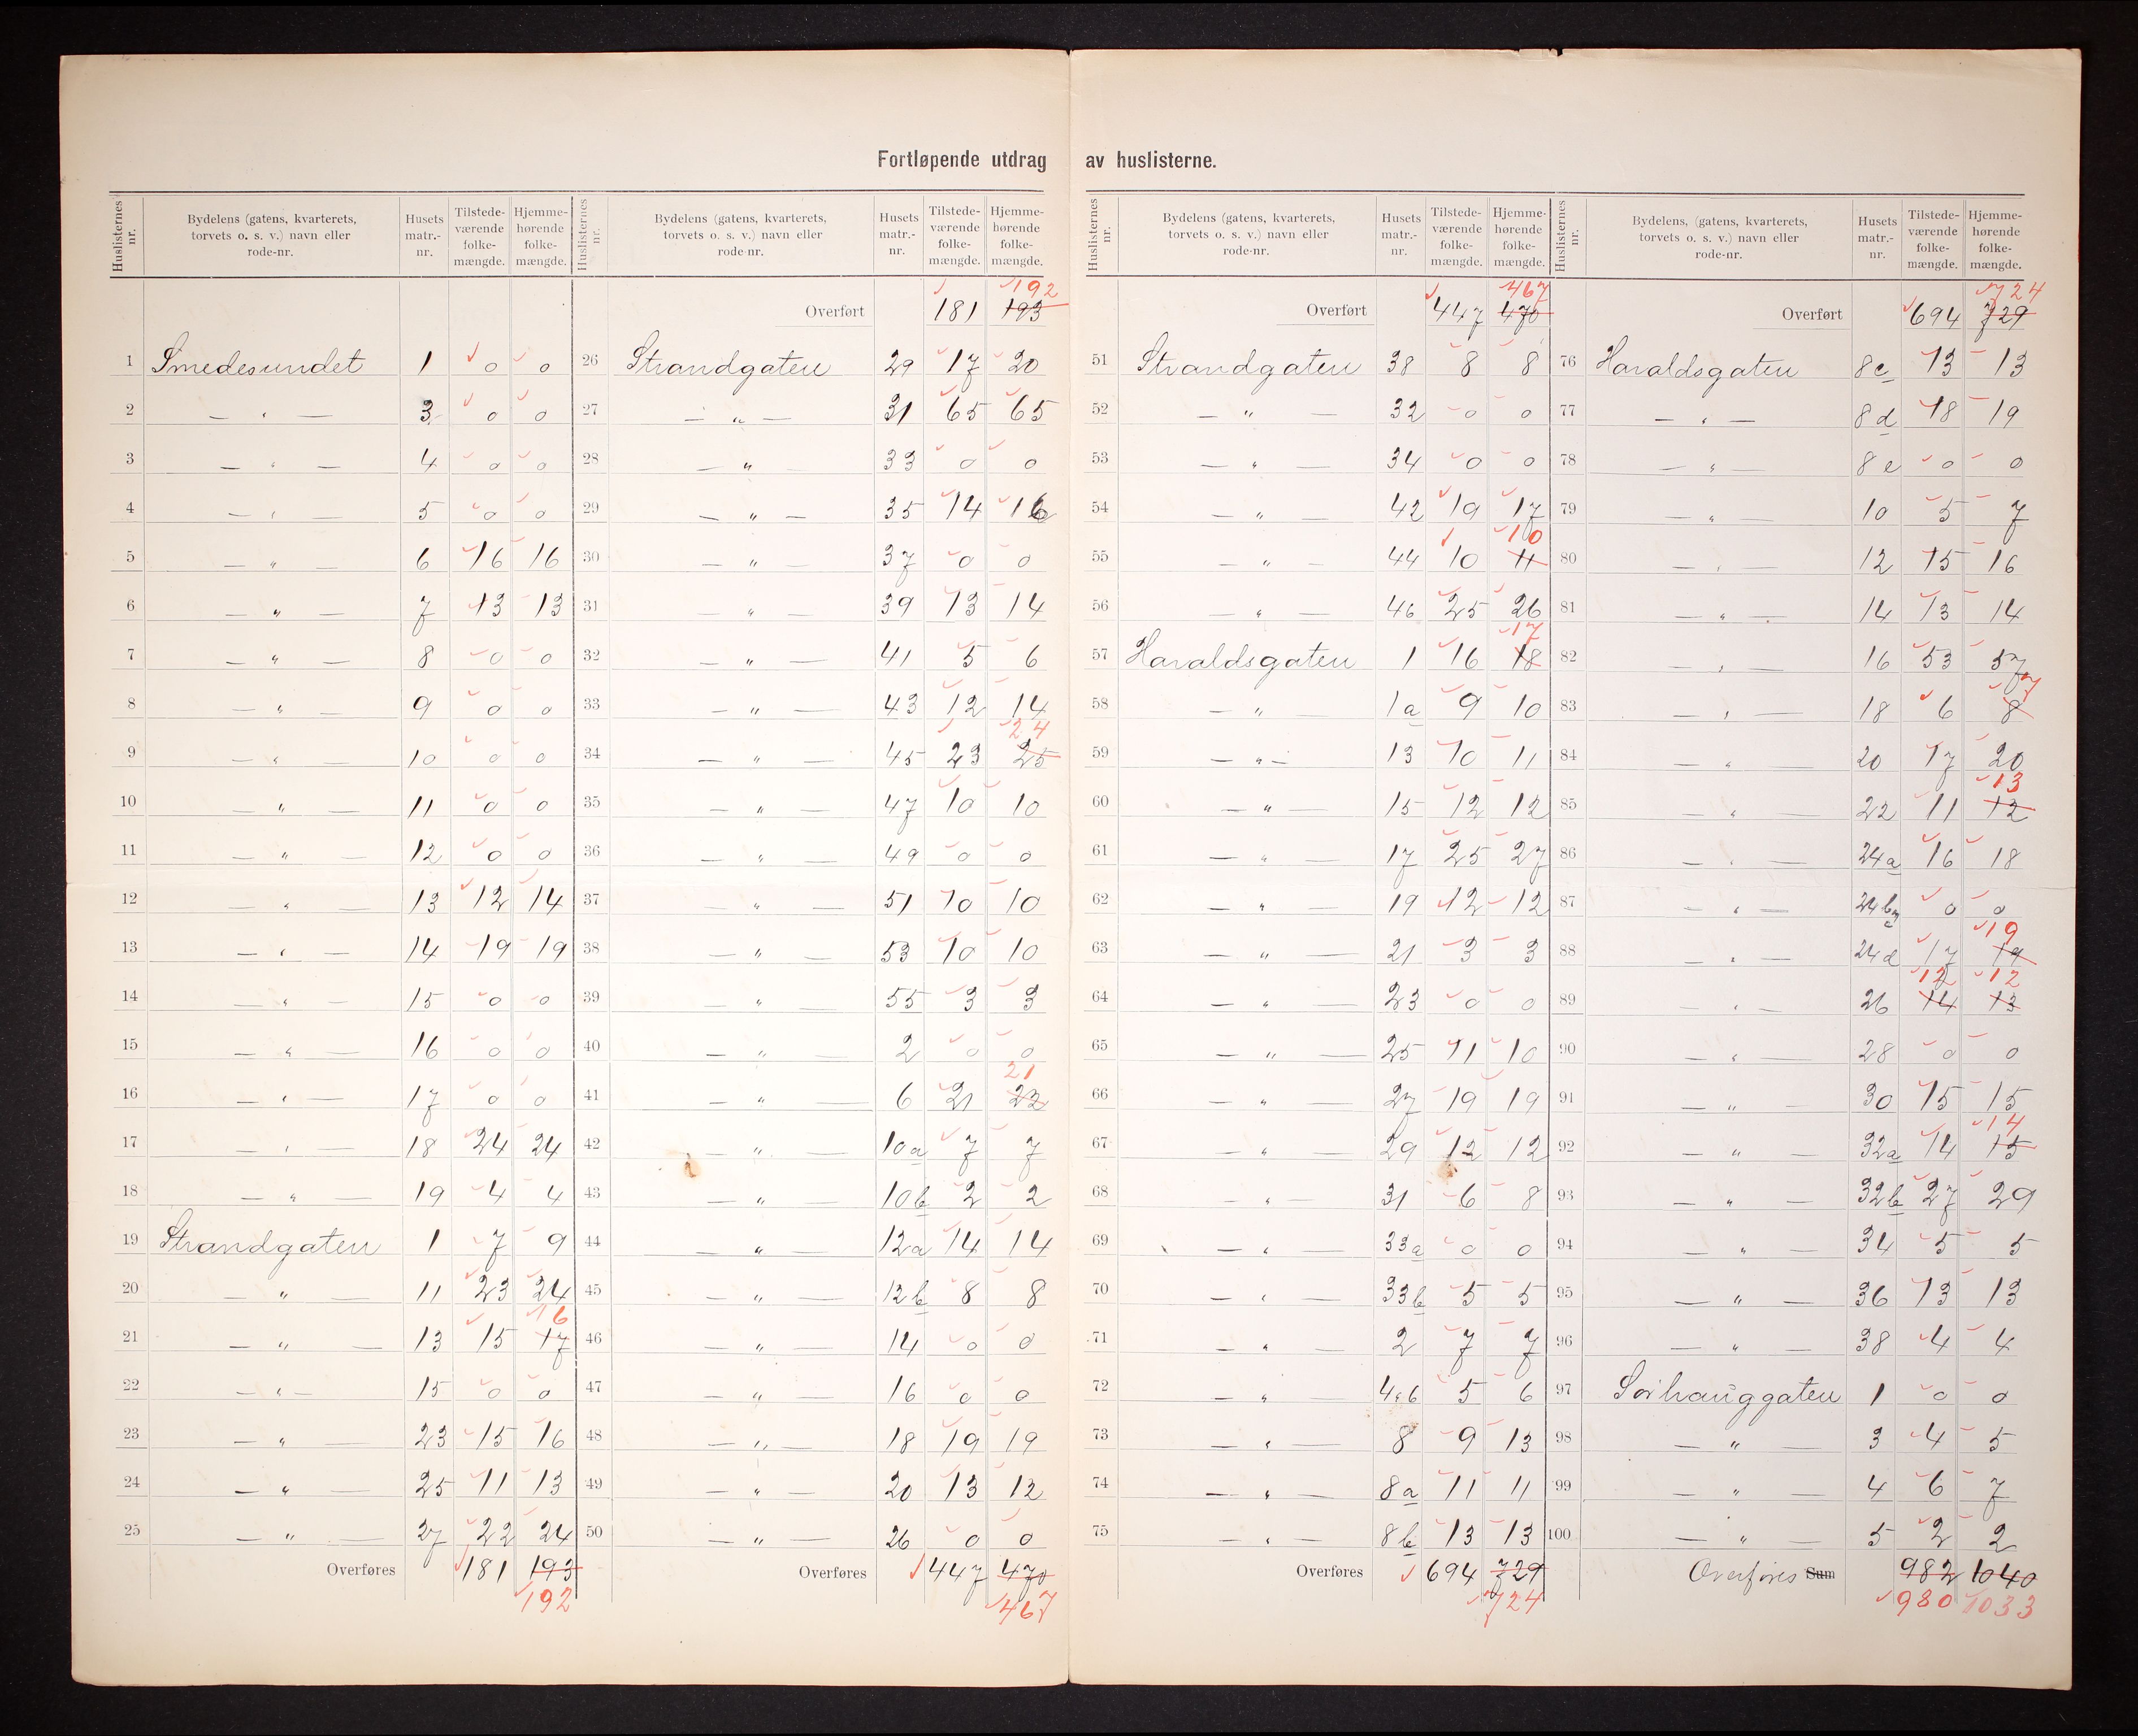 Fortløpende utdrag av huslisterne.
Huslisternes nr. | Bydelens (gatens, kvarterets, torvets o. s. v.) navn eller rode-nr. | Husets matr.-nr. | Tilstede-værende folke-mængde. | Hjemme-hørende folke-mængde.
1 Smedesundet 1 0 0
2 — " — 3 0 0
3 — " — 4 0 0
4 — " — 5 0 0
5 — " — 6 16 16
6 — " — 7 13 13
7 — " — 8 0 0
8 — " — 9 0 0
9 — " — 10 0 0
10 — " — 11 0 0
11 — " — 12 0 0
12 — " — 13 12 14
13 — " — 14 19 19
14 — " — 15 0 0
15 — " — 16 0 0
16 — " — 17 0 0
17 — " — 18 24 24
18 — " — 19 4 4
19 Strandgaten 1 7 9
20 — " — 11 23 24
21 — " — 13 15 17 16
22 — " — 15 0 0
23 — " — 23 15 16
24 — " — 25 11 13
25 — " — 27 22 24
Overføres 181 193
192
Huslisternes nr. | Bydelens (gatens, kvarterets, torvets o. s. v.) navn eller rode-nr. | Husets matr.-nr. | Tilstede-værende folke-mængde. | Hjemme-hørende folke-mængde.
Overført 181 193 192
26 Strandgaten 29 17 20
27 — " — 31 65 65
28 — " — 33 0 0
29 — " — 35 14 16
30 — " — 37 0 0
31 — " — 39 13 14
32 — " — 41 5 6
33 — " — 43 12 14
34 — " — 45 23 25 24
35 — " — 47 10 10
36 — " — 49 0 0
37 — " — 51 10 10
38 — " — 53 10 10
39 — " — 55 3 3
40 — " — 2 0 0
41 — " — 6 21 22 21
42 — " — 10a 7 7
43 — " — 10b 2 2
44 — " — 12a 14 14
45 — " — 12b 8 8
46 — " — 14 0 0
47 — " — 16 0 0
48 — " — 18 19 19
49 — " — 20 13 12
50 — " — 26 0 0
Overføres 447 470
467
Huslisternes nr. | Bydelens (gatens, kvarterets, torvets o. s. v.) navn eller rode-nr. | Husets matr.-nr. | Tilstede-værende folke-mængde. | Hjemme-hørende folke-mængde.
Overført 447 470 467
51 Strandgaten 38 8 8
52 — " — 32 0 0
53 — " — 34 0 0
54 — " — 42 19 17
55 — " — 44 10 11 10
56 — " — 46 25 26
57 Haraldsgaten 1 16 18 17
58 — " — 1a 9 10
59 — " — 13 10 11
60 — " — 15 12 12
61 — " — 17 25 27
62 — " — 19 12 12
63 — " — 21 3 3
64 — " — 23 0 0
65 — " — 25 11 10
66 — " — 27 19 19
67 — " — 29 12 12
68 — " — 31 6 8
69 — " — 33a 0 0
70 — " — 33b 5 5
71 — " — 2 7 7
72 — " — 4,6 5 6
73 — " — 8 9 13
74 — " — 8a 11 11
75 — " — 8b 13 13
Overføres 694 729
724
Huslisternes nr. | Bydelens, (gatens, kvarterets, torvets o. s. v.) navn eller rode-nr. | Husets matr.-nr. | Tilstede-værende folke-mængde. | Hjemme-hørende folke-mængde.
Overført 694 729 724
76 Haraldsgaten 8c 13 13
77 — " — 8d 18 19
78 — " — 8e 0 0
79 — " — 10 5 7
80 — " — 12 15 16
81 — " — 14 13 14
82 — " — 16 53 57
83 — " — 18 6 8 7
84 — " — 20 17 20
85 — " — 22 11 12 13
86 — " — 24a 16 18
87 — " — 24b 0 0
88 — " — 24d 17 19 19
89 — " — 26 14 12 13 12
90 — " — 28 0 0
91 — " — 30 15 15
92 — " — 32a 14 15 14
93 — " — 32b 27 29
94 — " — 34 5 5
95 — " — 36 13 13
96 — " — 38 4 4
97 Sørhauggaten 1 0 0
98 — " — 3 4 5
99 — " — 4 6 7
100 — " — 5 2 2
Overføres Sum 982 1040
980 1033